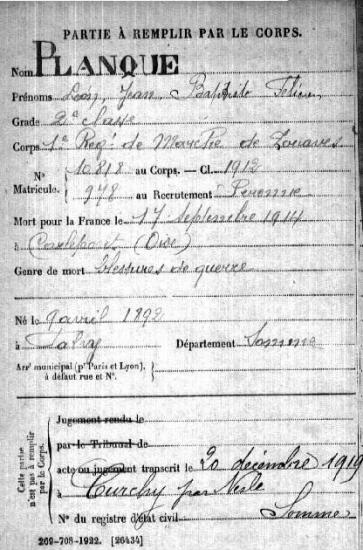 PARTIE À REMPLIR PAR LE CORPS.
Nom PLANQUE
Prénoms Léon, Jean, Baptiste
Grade 2e classe
Corps 1e Régt de Marche de Zouaves
N° 10818 au Corps. — Cl. 1912
Matricule. 948 au Recrutement Peronne
Mort pour la France le 17 Septembre 1914
à (Oise)
Genre de mort blessures de guerre
Né le 9 avril 1892
à Département Somme
Arrt municipal (pr Paris et Lyon),
à défaut rue et N°.
Cette partie
n'est pas à remplir
par le Corps.
Jugement rendu le
par le Tribunal de
acte ou jugement transcrit le 20 décembre 1919
à Curchy par Nesle
Somme
N° du registre d'état civil
269-708-1922. [26434]